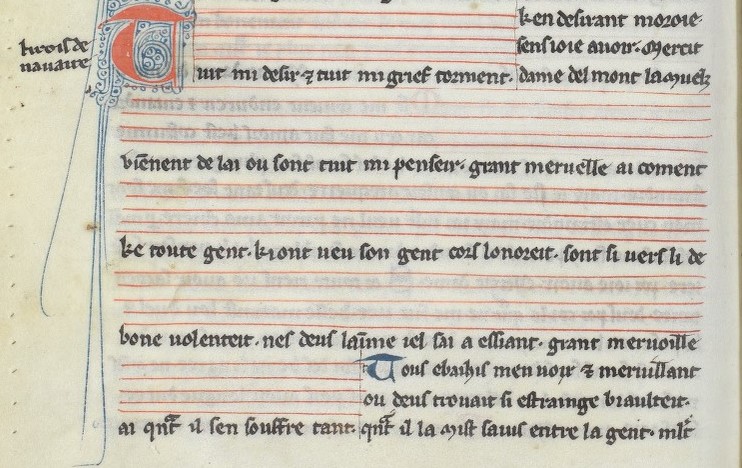 li rois de
navaire
ken desirant moroie·
sens ioie auoir· Mercit
Tuit mi desir ⁊ tuit mi grief torment· dame del mont la muelz
viēnent de lai ou sont tuit mi penseir· grant meruelle ai coment
ke toute gent· ki ont ueu son gent cors lonoreit· sont si uers li de
bone uolenteit· nes deus laīme iel sai a essiant· grant meruoille
Tous ebahis men uoix ⁊ meruillant
ou deus trouait si estrainge biaulteit·
ai qnt̄ il sen souffre tant· qnt̄ il la mist saius entre la gent· mlt̄